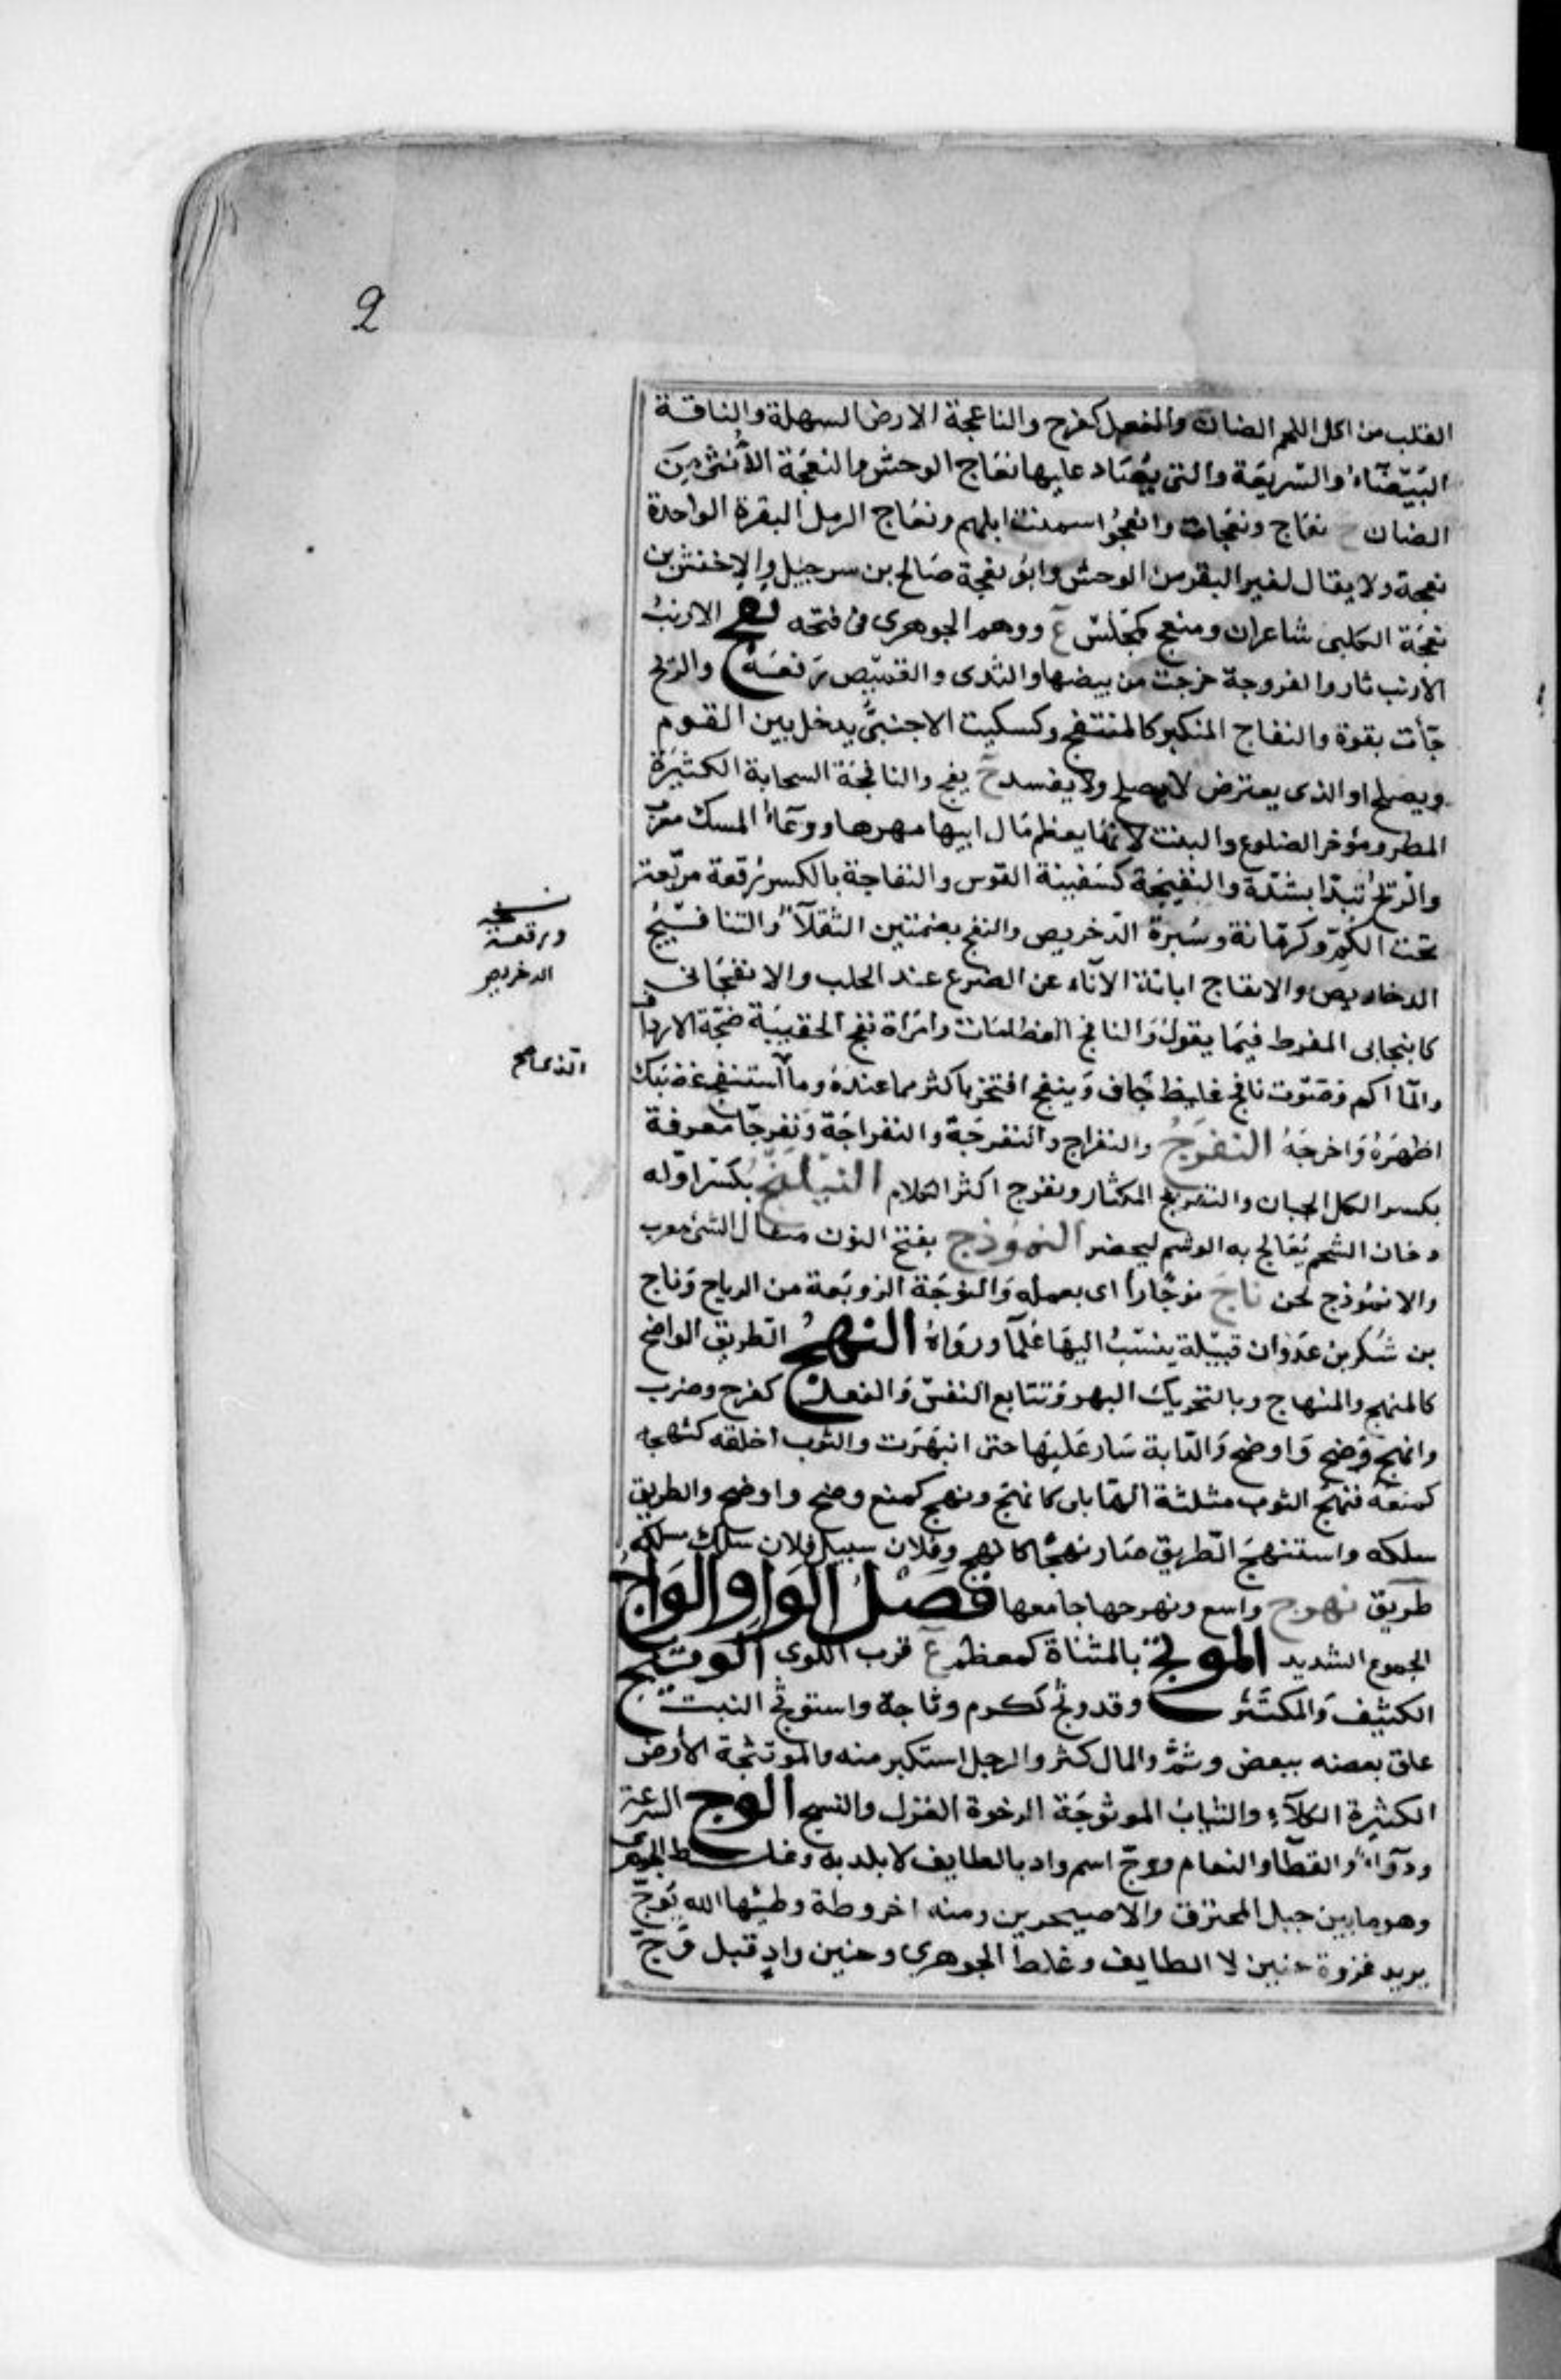 2
القلب من اكل اللحم الضان والفعل كفرح والناعجة الارض السهلة والناقة
البَيْضَاءُ والسّريعَة والتى يُصَاد عليها نعَاج الوحش والنعَجَة الأُنثى مِنَ
الضان ج نعَاج ونعَجات وانعجُوا اسمنت ابلهم ونعَاج الرمل البقرة الواحدة
نعجة ولا يقال لغير البقر من الوحش وابو نعجة صَالح بن سرحبيل والاخنش بن
نعجَة الكلبى شاعران ومنعج كمَجْلس ع ووهم الجوهرى فى فتحه نفج الارنبُ
الارنب ثار والفروجة خرجت من بيضها والثدى والقميص رفعَه والريح
جَأت بقوة والنفاج المتكبر كالمنتفج وكسكيت الاجنبىّ يدخل بين القوم
ويصلح او الذى يعترض لا يصلح ولا يفسد ج نفج والنافجَة السحابة الكثيرَة
المطر ومؤخر الضلوع والبنت لانها يعظم مَال ابيها مهرها ووعَاءُ المسك معرب
والريحُ تبدَا بشدّة والنفيجَة كسَفينة القوس والنفاجة بالكسر رُقعة مربّعة
تحت الكُمّ وكرمّانة وسُبرة الدّخريص والنفج بضمتين الثقلاَءُ والتنافيجُ
الدخاريص والانفاج ابانة الآناء عن الضرع عند الحلب والانفجَانى
كانبجانى المفرط فيمَا يقولُ وَالنافج العظامَات وامَراة نفج الحقيبَة ضخمَة الارداف
والمآاكم وَصَوت نافج غليظ جَاف وَينفج افتخر باكثر مما عندهُ وما استنفج غضبَك
اظهَرهُ وَاخرجَهُ النفرَجُ والنفراج والنفرجَة والنفراجَة وَنفرجَا معرفة
بكسر الكل الجبان والنفريج المكثار ونفرج اكثر الكلام النيَلنجُ بكسَر اوله
دخان الشحم يُعَالج به الوشم ليحضر النموذج بفتح النون مثال الشئ معرب
والانمُوذج لحن ناج نوجًا رااى بعمله وَالنوجَة الزوبَعة من الرياح وَناج
بن شُكر بن عدوان قبيلة ينسَبُ اليهَا عُلمآ ورَواةُ النهجُ الطريق الواضح
كالمنهج والمنهاج وبالتحريك البهر وَتتابع النفسَ وَالفعل كفرح وضرب
وانهج وَضح وَاوضح وَالدّابة سَار عَليهَا حتى انبهَرت والثوب اخلقه كنهجه
كمنعَهُ فنهجُ الثوب مثلثة الهَاء بلى كانهج ونهج كمنع وضح واوضح والطريق
سلكه واستنهجَ الطريق صَار نهجًا كانهج وفلان سبيل فلان سلك مسلكه
طرَيق نهوج واسع ونهرجها جامعها فصل الوَاو الوَأجُ
الجموع الشديد الموتج بالمثناة كمعظم ع قرب اللوى الوثيج
الكثيفَ وَالمكتَنز وقد وثُج ككرم وثاجة واستوثج النبت
علق بعضه ببعض وتمَّ والمال كثر والرجل استكثر منه والموتثجة الارض
الكثيرة الكلآءِ والثيابُ الموثوجَة الرخوة الغزل والنسج الوج السرعة
ودَوآءٌ والقطَا والنعام ووجّ اسم واد بالطايف لا بلد به وغلط الجوهرى
وهو ما بين جبل المحترق والاحيحرين ومنه اخر وطاة وطئها الله بَوجّ
يريد غزوة حنين لا الطايف وغلط الجوهرى وحنين وادٍ قبل وَجّ
نسخه
ورقعة
الدخريص
الذى صح